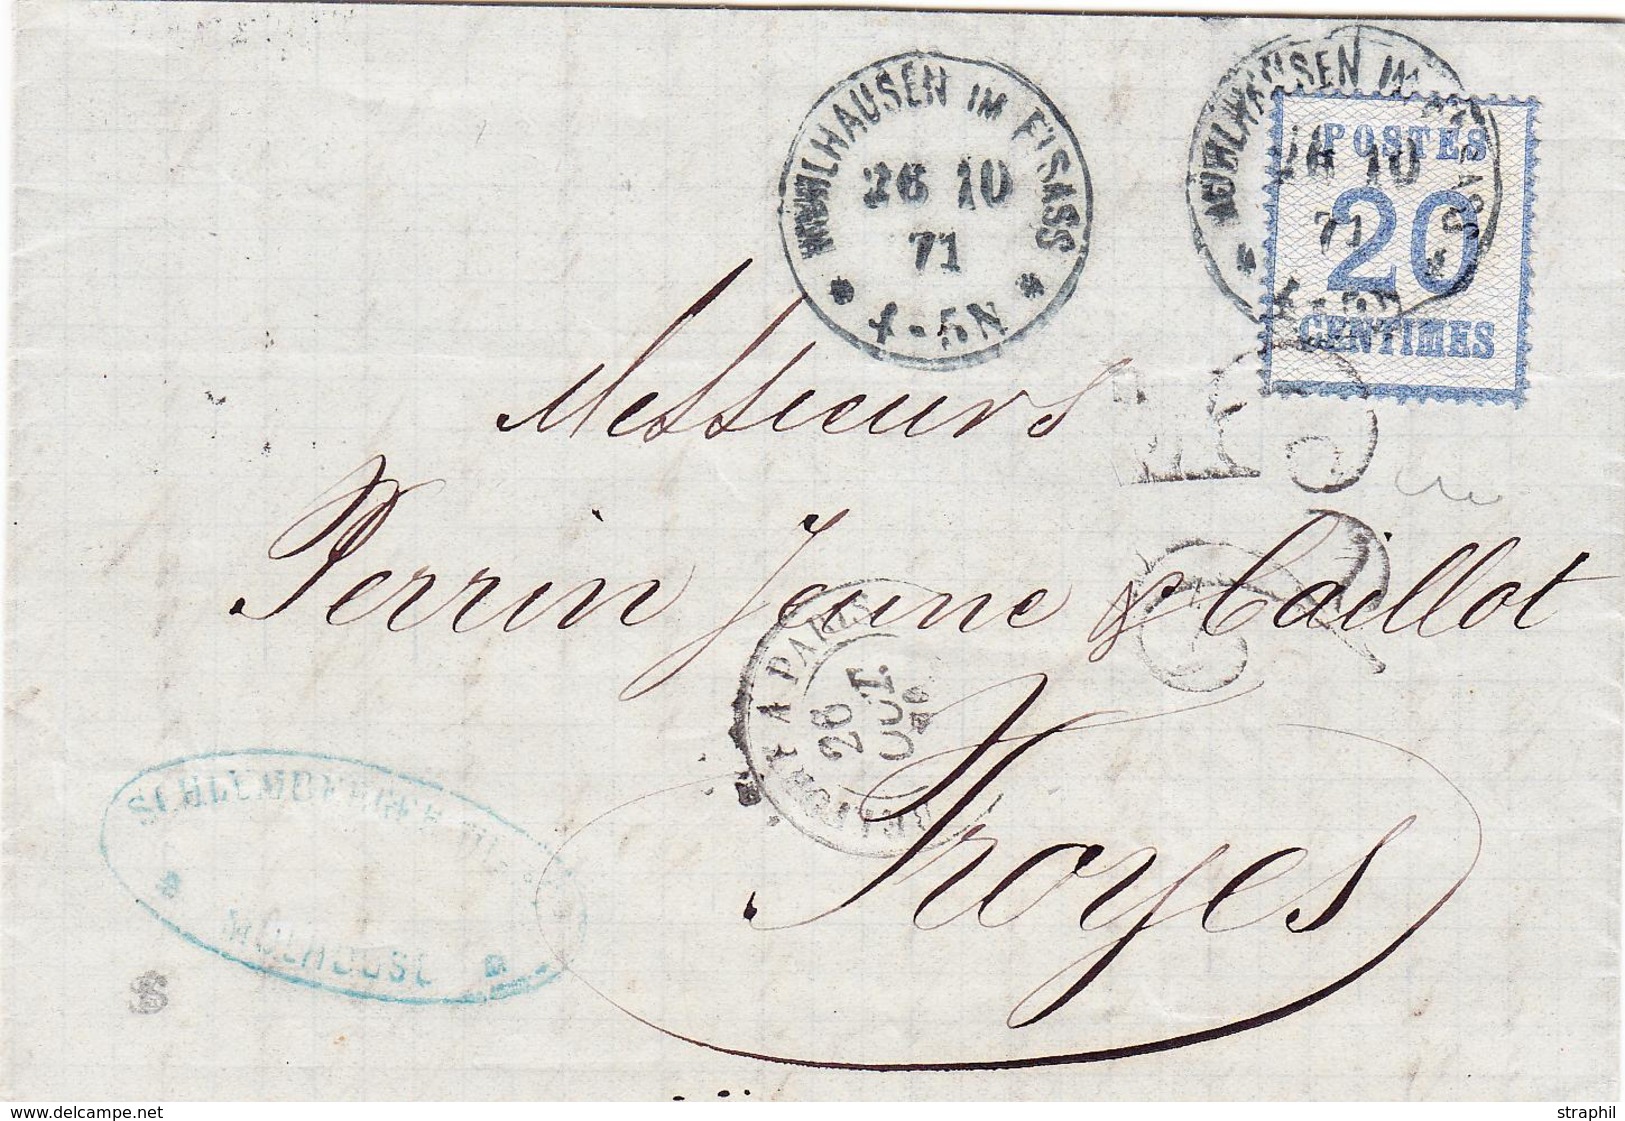 MUHLHAUSEN IM E'SASS
26 10
71
4-5N
MUHLHAUSEN IM
26 10
71
POSTES
20
CENTIMES
Messieurs
Perrin Jeune & Caillot
Troyes
BELFORT A PARIS
26
OCT.
SCHLUMBERGER
MULHOUSE
www.delcampe.net
straphil